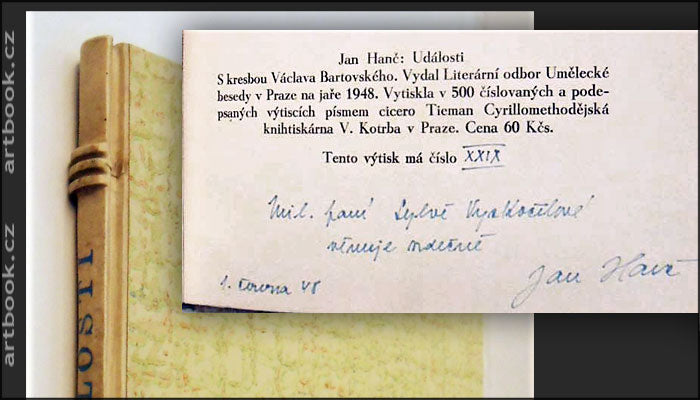 Jan Hanč: Události
S kresbou Václava Bartovského. Vydal Literární odbor Umělecké
besedy v Praze na jaře 1948. Vytiskla v 500 číslovaných a pode-
psaných výtiscích písmem cicero Tieman Cyrillomethodějská
knihtiskárna V. Kotrba v Praze. Cena 60 Kčs.
Tento výtisk má číslo XXIX
Mil. paní Sylvě Vyskočilové
věnuje srdečně
1. června 48
Jan Hanč
LOSTI
artbook.cz
artbook.cz